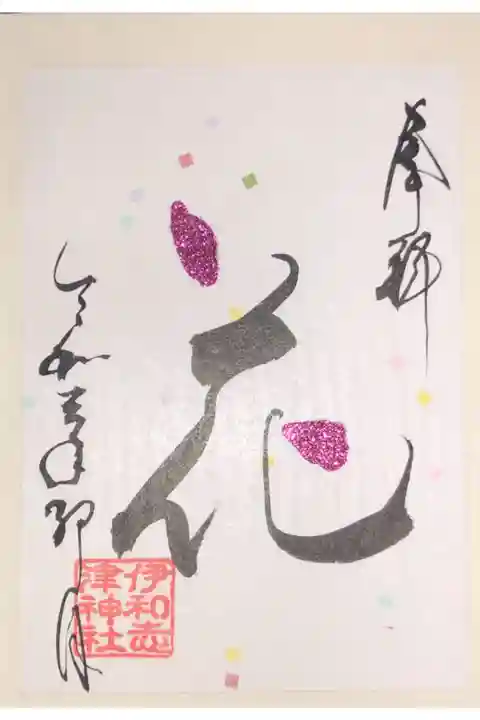 奉拝
花
令和年卯月
伊和志
津神社